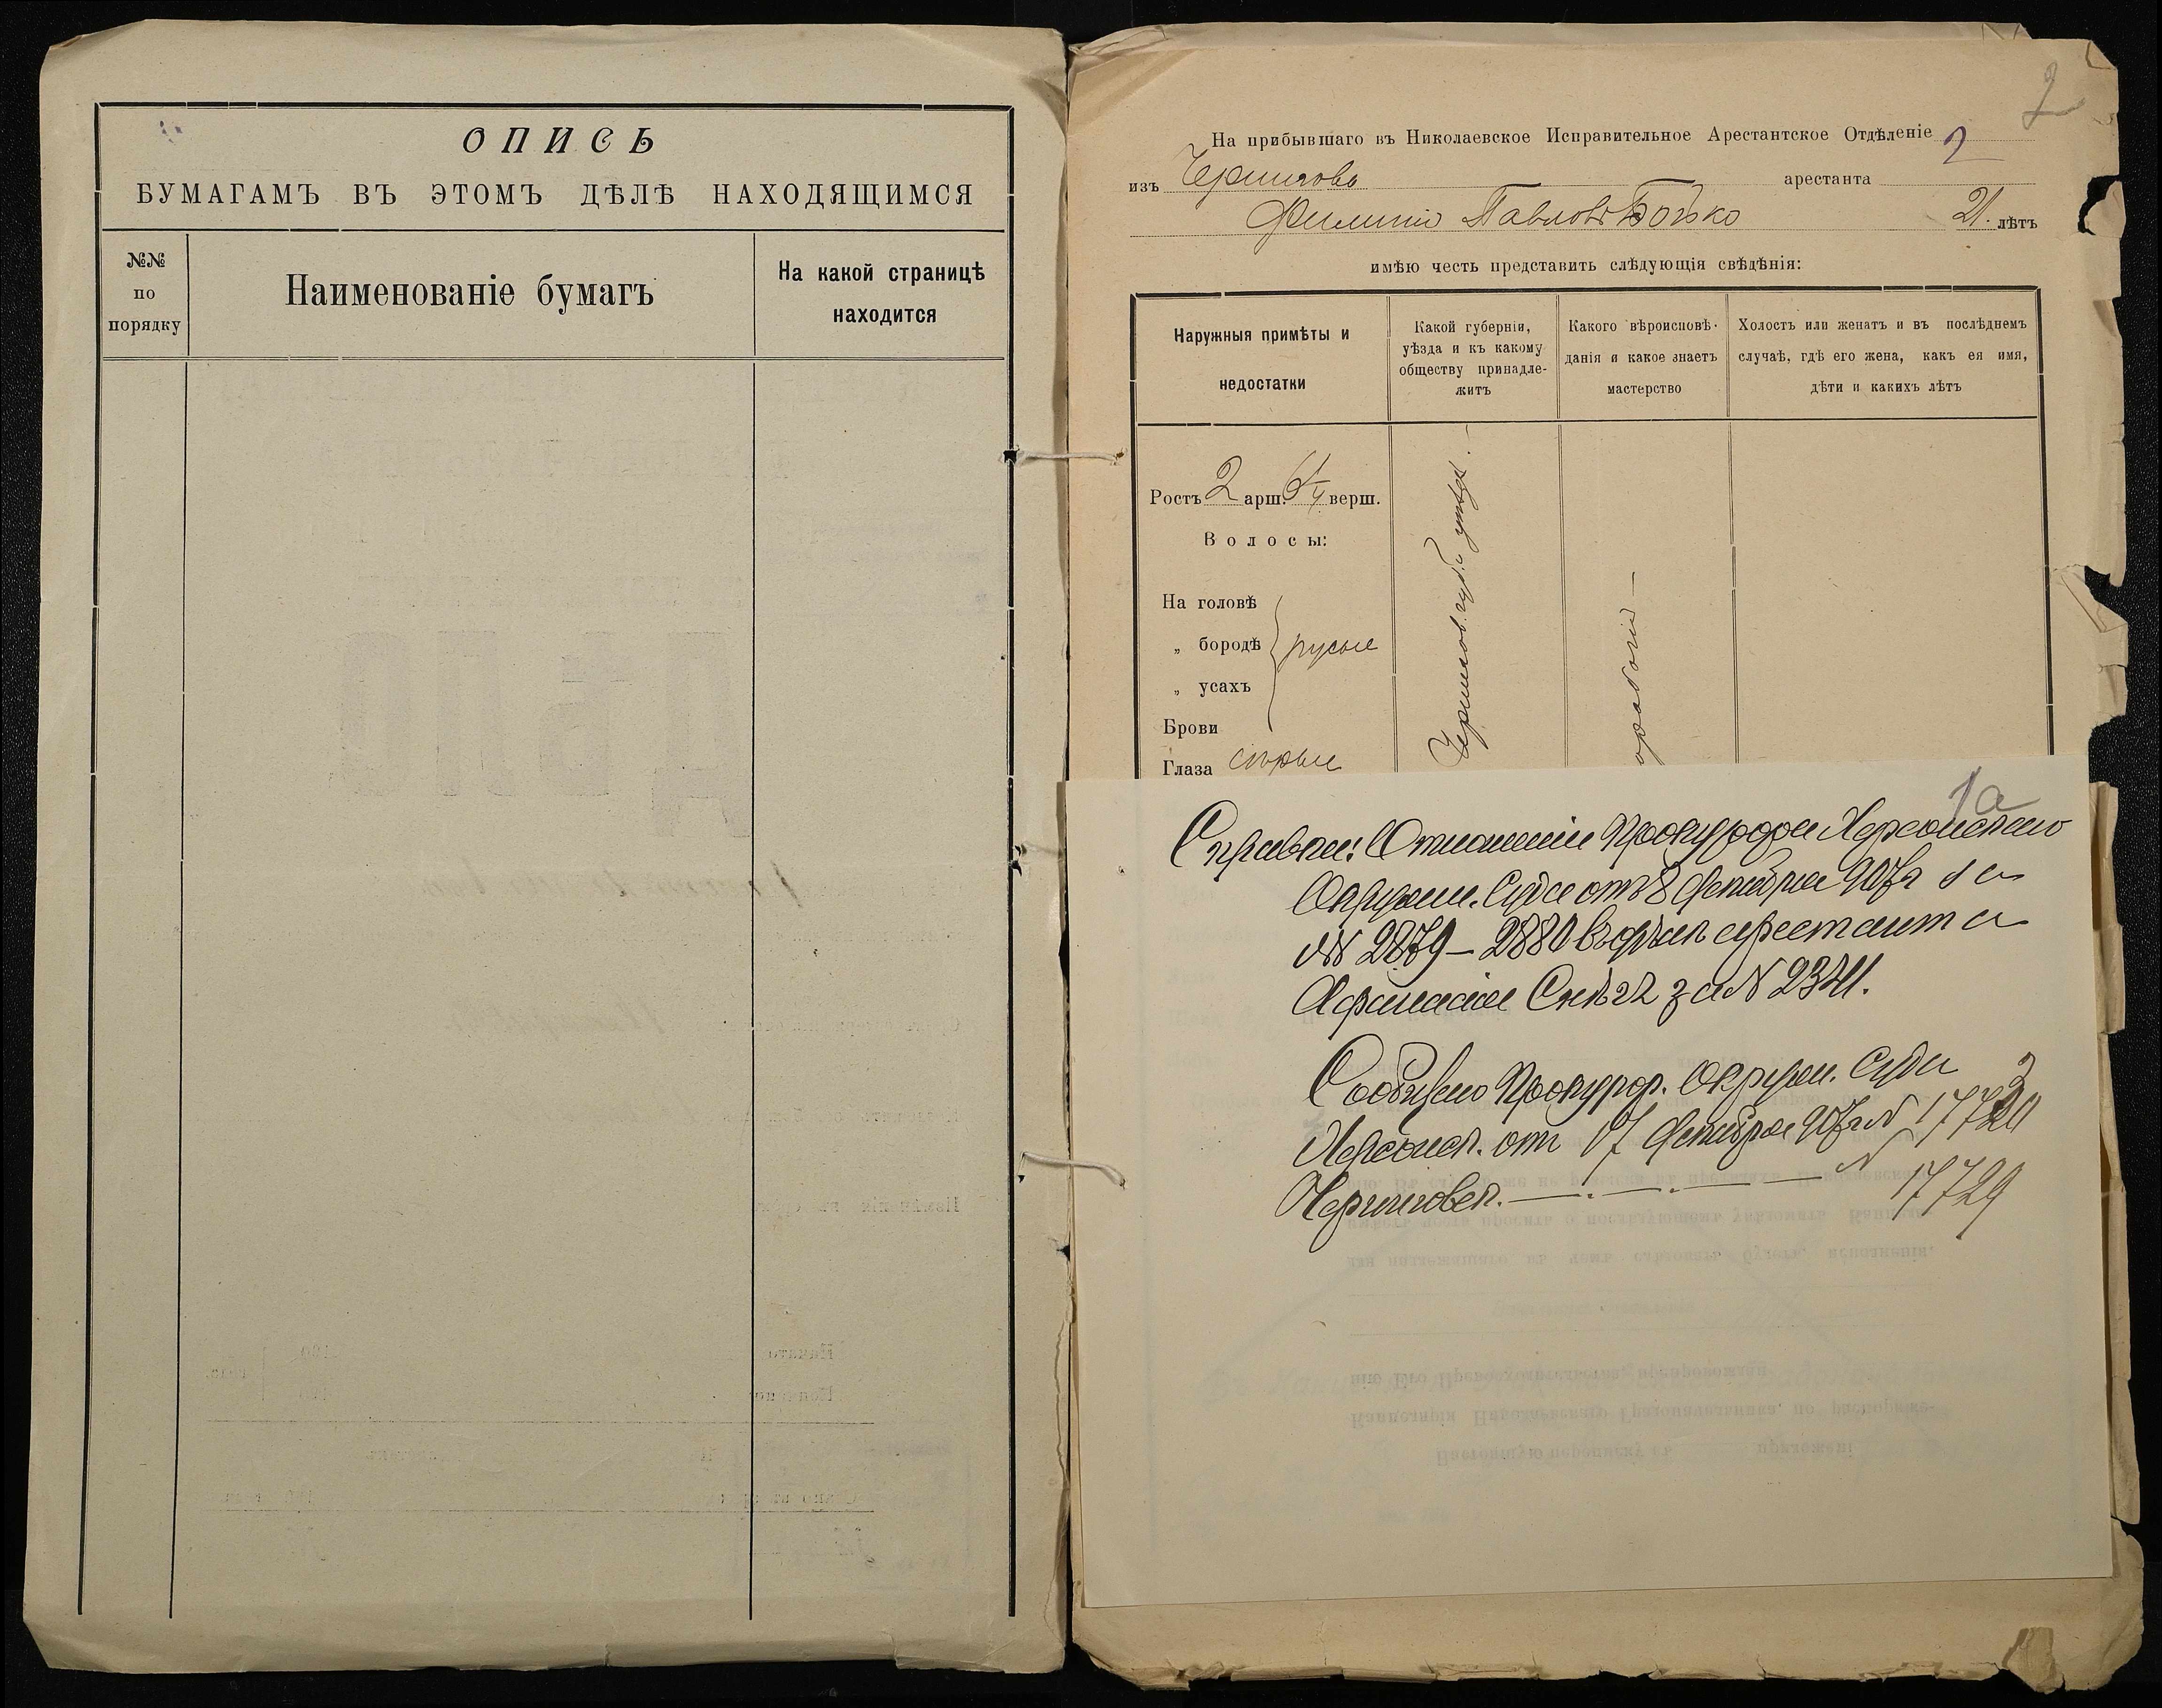 ОПИСЬ
БУМАГАМЪ ВЪ ЭТОМЪ ДѢЛѢ НАХОДЯЩИМСЯ
№№ по порядку
Наименованіе бумагъ
На какой страницѣ находится
2
На прибывшаго въ Николаевское Исправительное Арестантское Отдѣленіе 2
изъ Чернигова арестанта
Филиппъ Павловъ Бойко 21. лѣтъ
имѣю честь представить слѣдующія свѣдѣнія:
Наружныя примѣты и
недостатки
Какой губерніи,
уѣзда и къ какому
обществу принадле-
житъ
Какого вѣроисповѣ-
данія и какое знаетъ
мастерство
Холостъ или женатъ и въ послѣднемъ
случаѣ, гдѣ его жена, какъ ея имя,
дѣти и какихъ лѣтъ
Ростъ 2 арш. верш.
Волосы:
На головѣ
„ бородѣ русые
„ усахъ
Брови
Глаза сѣрые
Чернигов. губ. и уѣзда.
1а
Справка: Отношеніе Прокурора Херсонскаго
Окружн. Суда отъ 8 Декабря 907 г за
№№ 2879 – 2880 въ дѣлѣ арестанта
Афанасія за № 2341.
Сообщено Прокурор. Окружн. Суда
Херсонск. отъ 17 Декабря 907 г №
Черниговск. №
17729